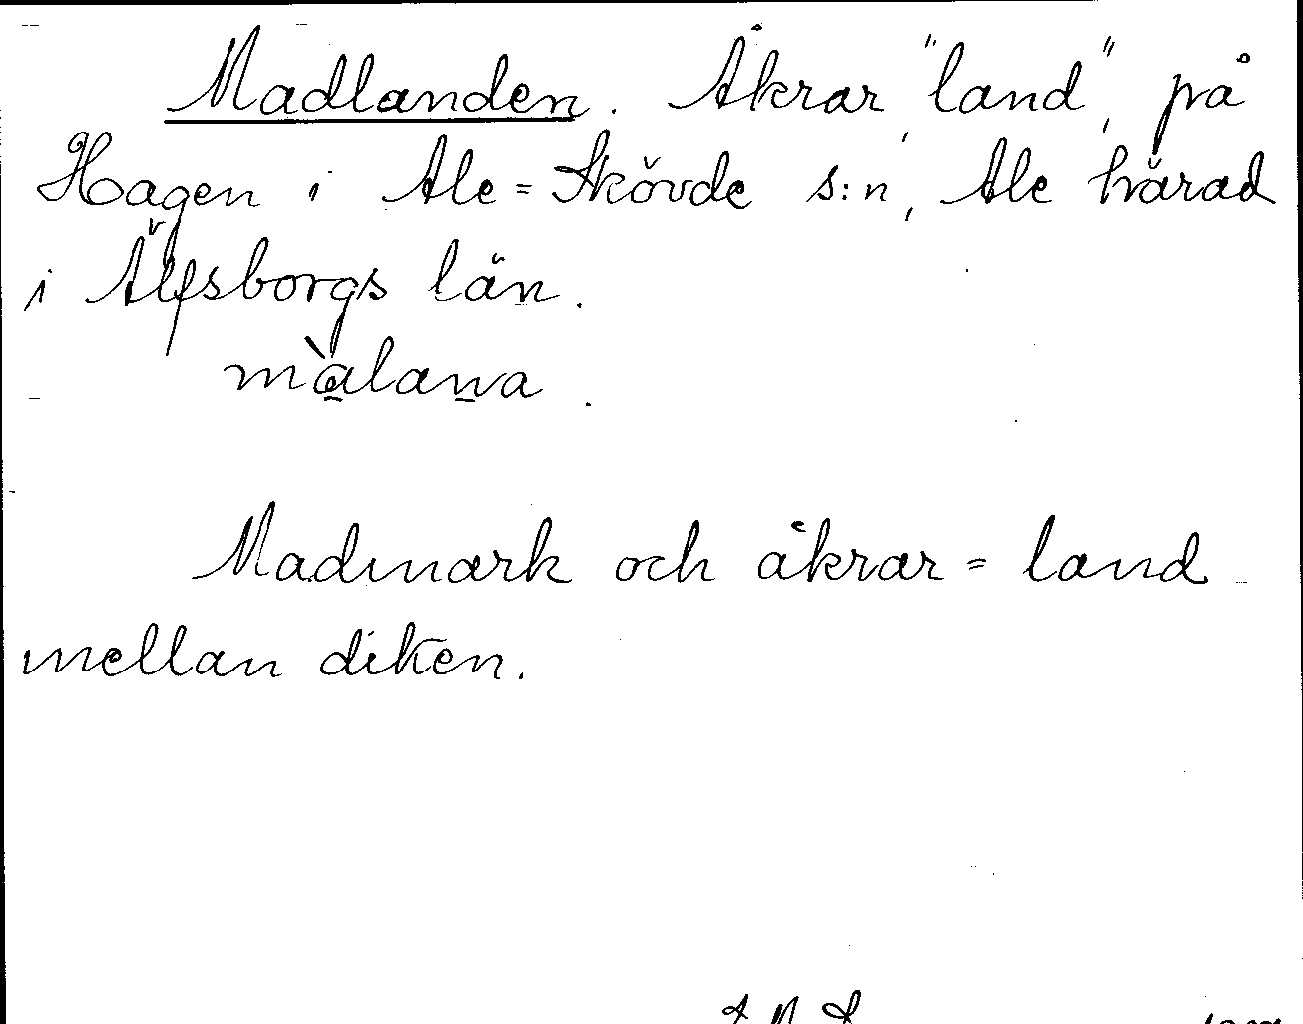 Madlanden. Åkrar, "land", på
Hagen i Ale=Skövde s:n, Ale härad
i Älfsborgs län.
màlana.
Madmark och åkrar = land
mellan diken.